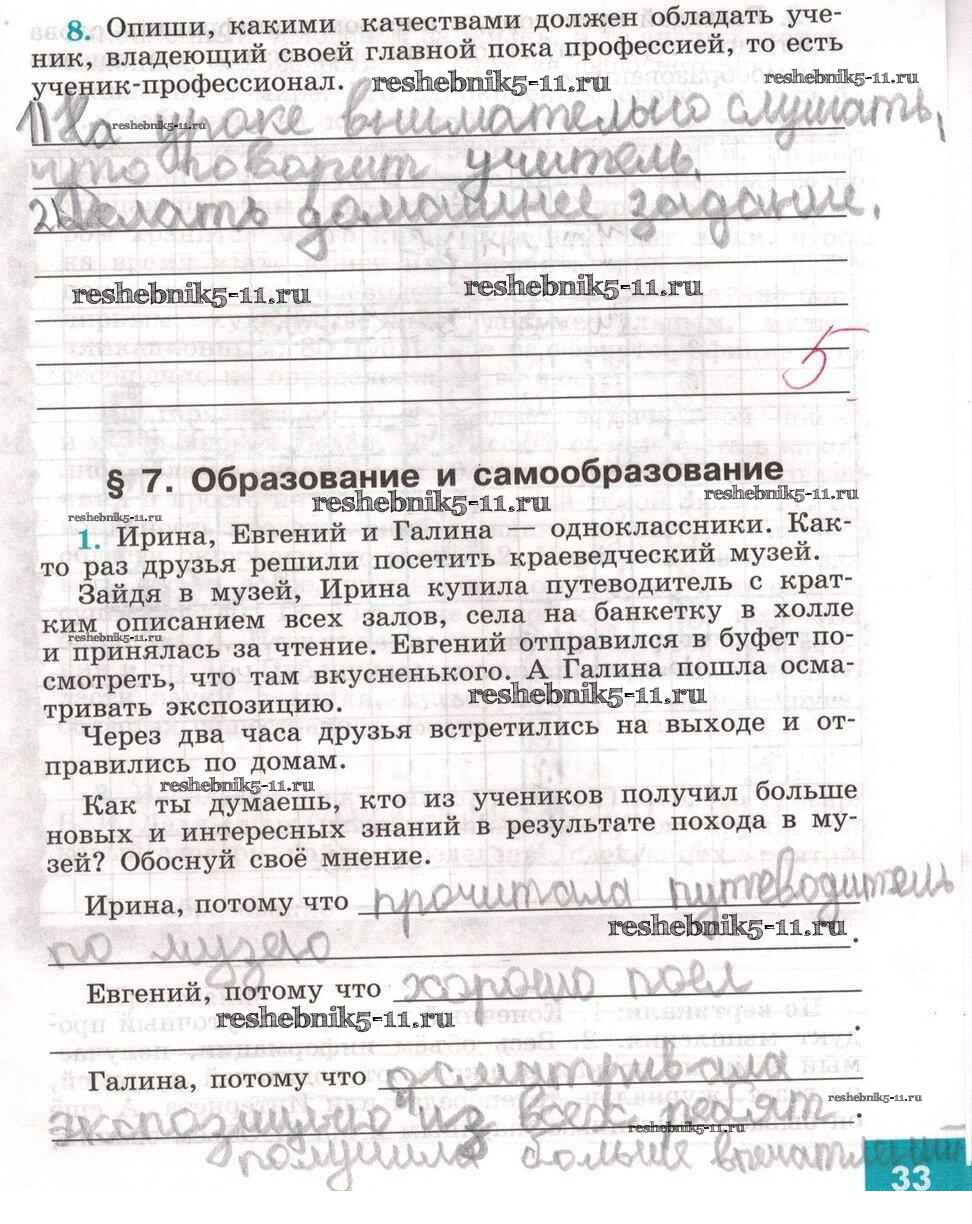 8. Опиши, какими качествами должен обладать уче-
ник, владеющий своей главной пока профессией, то есть
ученик-профессионал. reshebnik5-11.ru reshebnik5-11.ru
1) На уроке внимательно слушать,
reshebnik5-11.ru
что говорит учитель.
2) Делать домашнее задание.
reshebnik5-11.ru reshebnik5-11.ru
5
§ 7. Образование и самообразование
reshebnik5-11.ru reshebnik5-11.ru
reshebnik5-11.ru
1. Ирина, Евгений и Галина — одноклассники. Как-
то раз друзья решили посетить краеведческий музей.
Зайдя в музей, Ирина купила путеводитель с крат-
ким описанием всех залов, села на банкетку в холле
reshebnik5-11.ru
и принялась за чтение. Евгений отправился в буфет по-
смотреть, что там вкусненького. А Галина пошла осма-
тривать экспозицию. reshebnik5-11.ru
Через два часа друзья встретились на выходе и от-
правились по домам.
reshebnik5-11.ru
Как ты думаешь, кто из учеников получил больше
новых и интересных знаний в результате похода в му-
зей? Обоснуй своё мнение.
Ирина, потому что прочитала путеводитель
reshebnik5-11.ru
по музею.
Евгений, потому что хорошо поел
reshebnik5-11.ru .
Галина, потому что осматривала
reshebnik5-11.ru
экспозицию и из всех ребят.
reshebnik5-11.ru
получила больше впечатлений
33